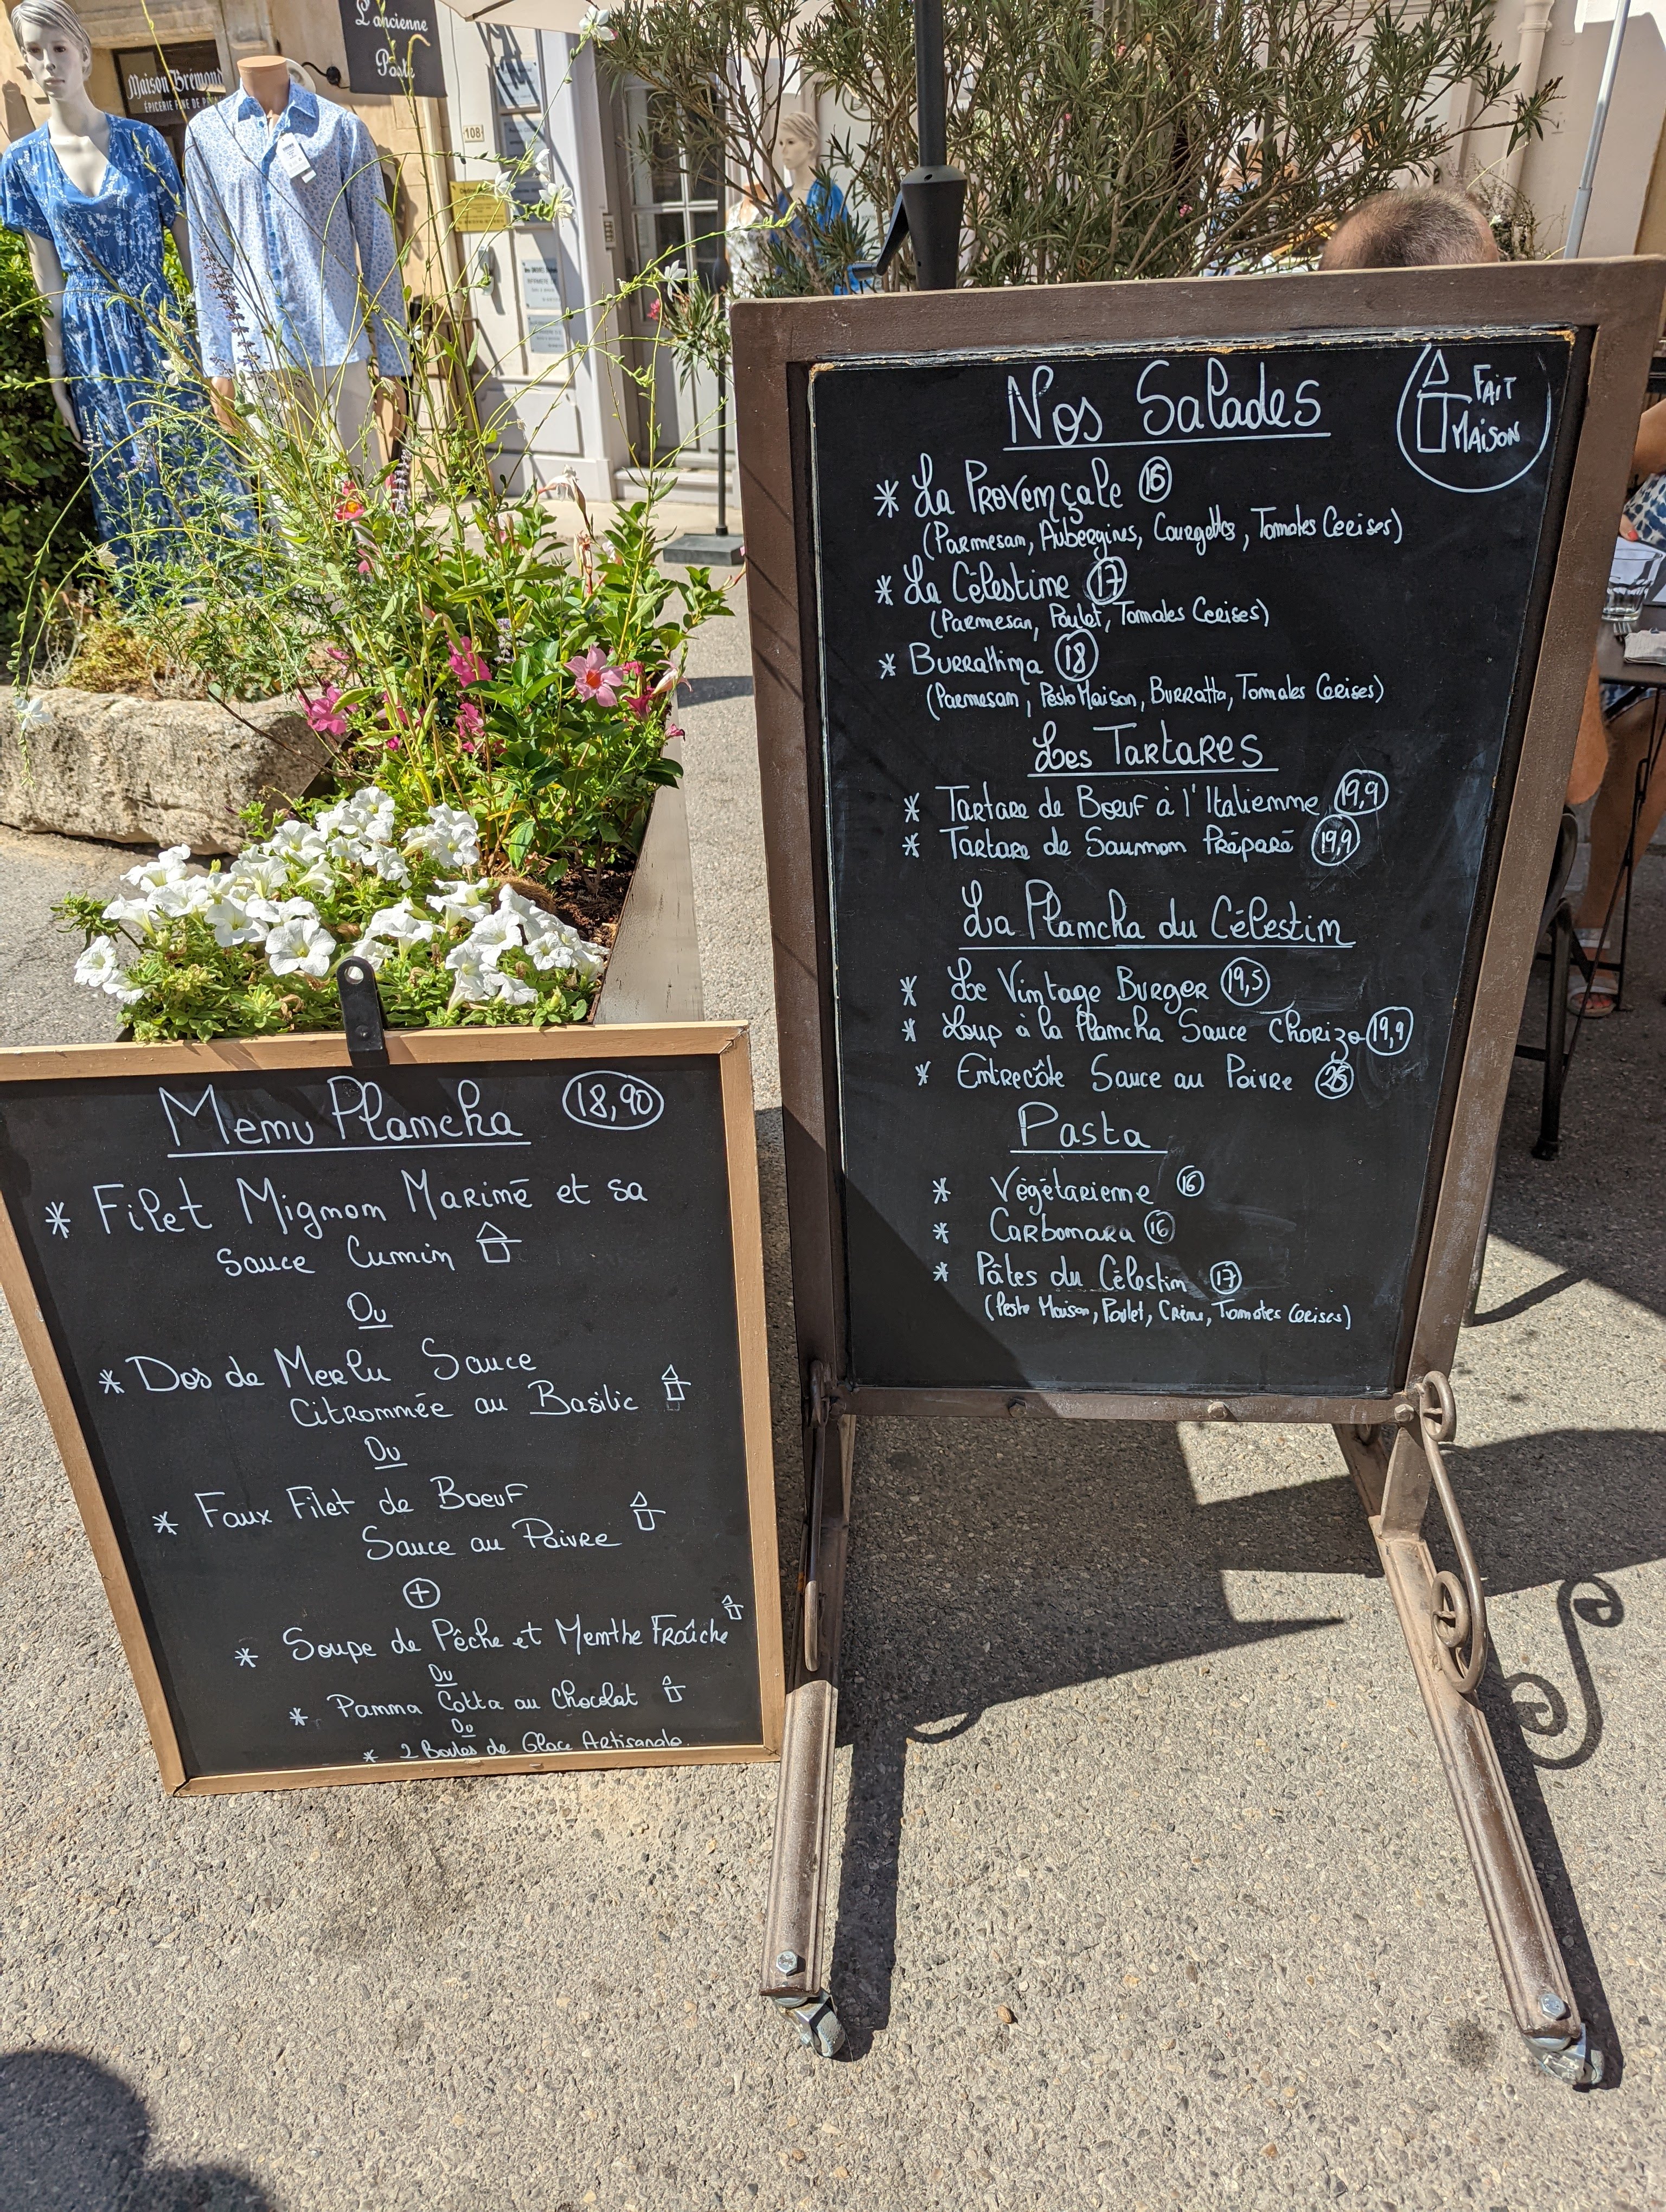 L'ancienne
Poste
Maison Brémond
ÉPICERIE FINE DE
108
Nos Salades
FAIT
MAISON
* La Provençale 16
(Parmesan, Aubergines, Courgettes, Tomates Cerises)
* La Célestine 17
(Parmesan, Poulet, Tomates Cerises)
* Burrattina 18
(Parmesan, Pesto Maison, Burratta, Tomates Cerises)
Les Tartares
* Tartare de Bœuf à l'Italienne 19,9
* Tartare de Saumon Préparé 19,9
La Plancha du Célestin
* Le Vintage Burger 19,5
* Loup à la Plancha Sauce Chorizo 19,9
* Entrecôte Sauce au Poivre
Pasta
* Végétarienne 16
* Carbonara 16
* Pâtes du Célestin 17
(Pesto Maison, Poulet, Crème, Tomates Cerises)
Menu Plancha 18,90
* Filet Mignon Mariné et sa
Sauce Cumin
Ou
* Dos de Merlu Sauce
Citronnée au Basilic
Ou
* Faux Filet de Boeuf
Sauce au Poivre
+
* Soupe de Pêche et Menthe Fraîche
Ou
* Panna Cotta au Chocolat
Ou
* 2 Boules de Glace Artisanale